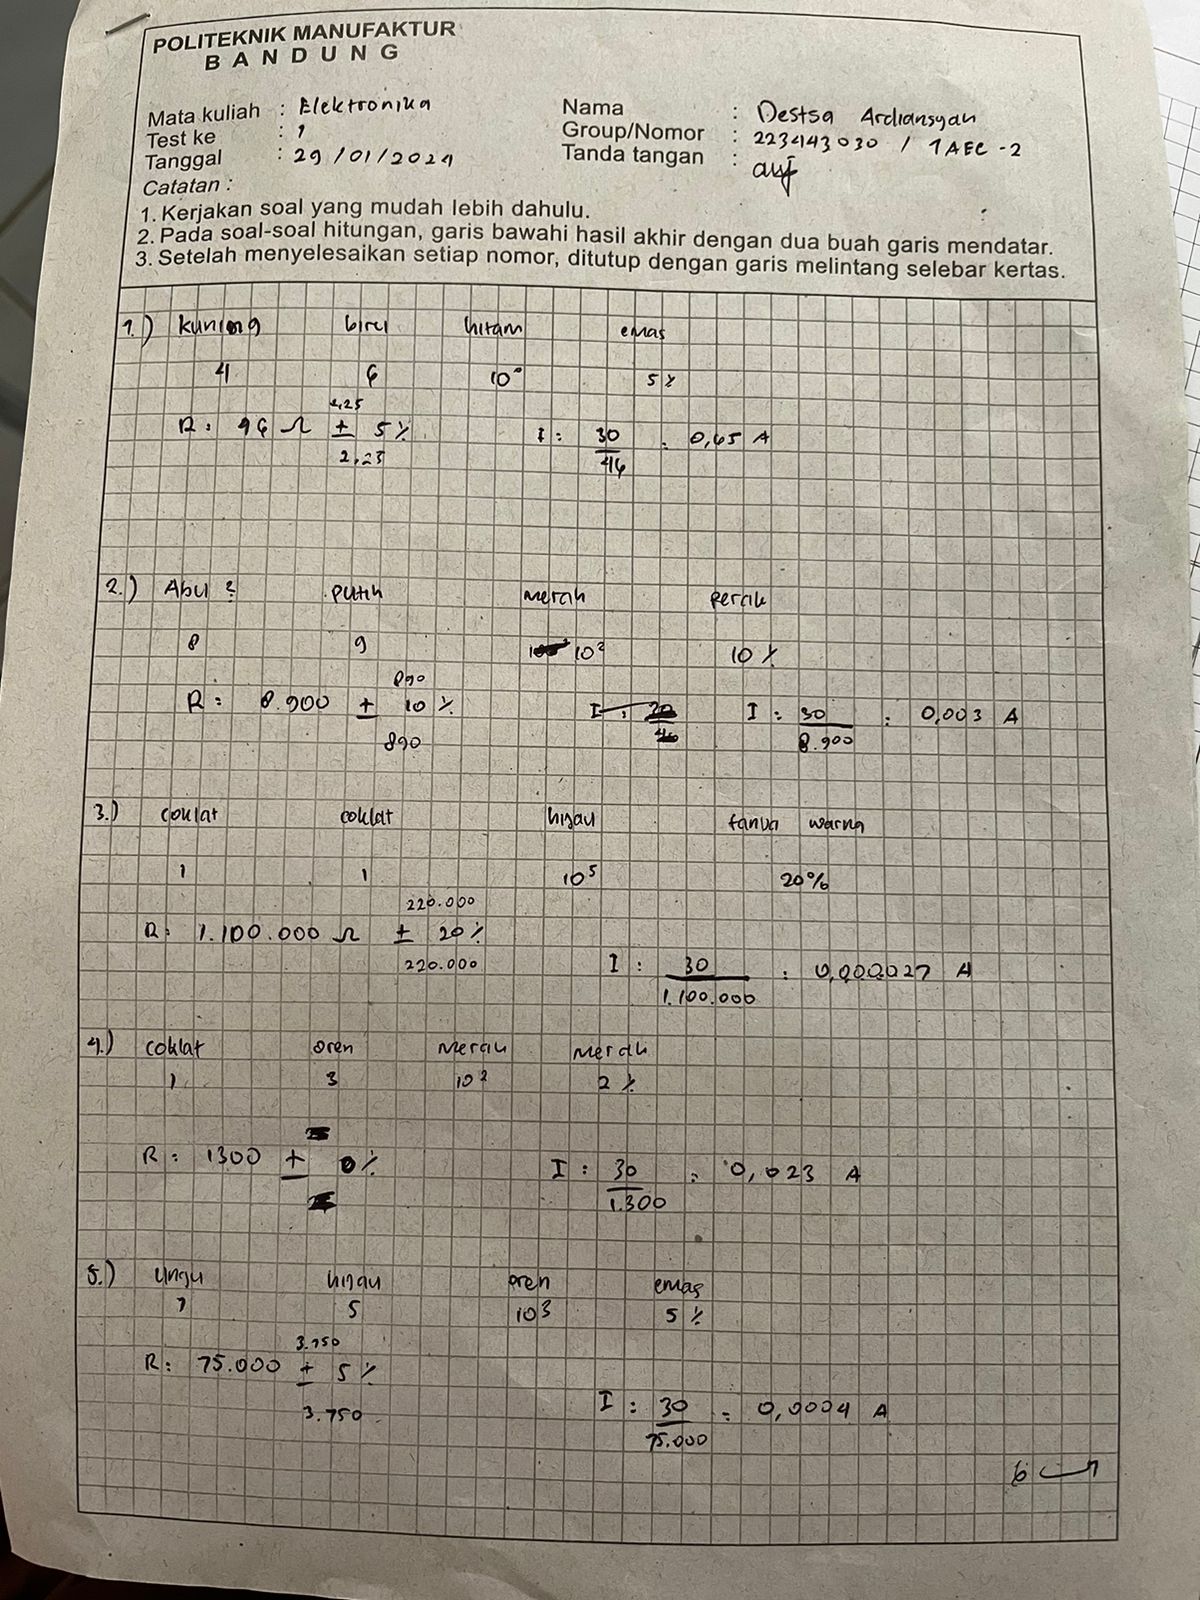 POLITEKNIK MANUFAKTUR
BANDUNG
Mata kuliah : Elektronika
Test ke : 1
Tanggal : 29/01/2024
Nama : Destsa Ardiansyah
Group/Nomor : 223443030 / 1AEC-2
Tanda tangan :
Catatan :
1. Kerjakan soal yang mudah lebih dahulu.
2. Pada soal-soal hitungan, garis bawahi hasil akhir dengan dua buah garis mendatar.
3. Setelah menyelesaikan setiap nomor, ditutup dengan garis melintang selebar kertas.
1.) kuning biru hitam emas
4 6 10⁰ 5%
2,25
R: 46 Ω ± 5% I: 30/46 = 0,65 A
2,23
2.) Abu² putih merah perak
8 9 10² 10%
890
R: 8.900 ± 10% I: 30/8.900 = 0,003 A
890
3.) coklat coklat hijau tanpa warna
1 1 10⁵ 20%
220.000
R: 1.100.000 Ω ± 20%
220.000 I: 30/1.100.000 = 0,000027 A
4.) coklat oren merah merah
1 3 10² 2%
R: 1300 ± % I: 30/1.300 = 0,023 A
5.) ungu hijau oren emas
7 5 10³ 5%
3.750
R: 75.000 ± 5%
3.750 I: 30/75.000 = 0,0004 A
6